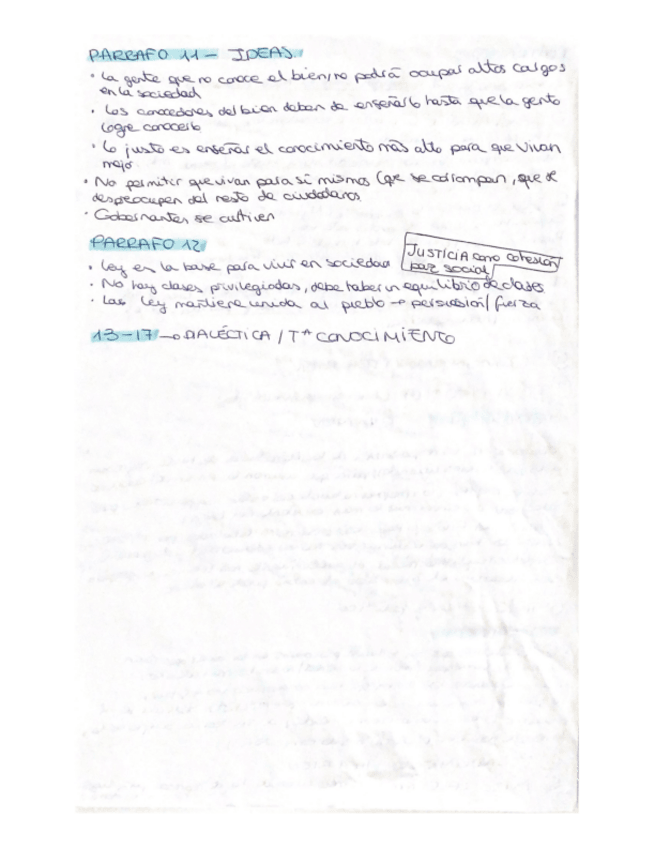 PARRAFO 11 - IDEAS.
· La gente que no conoce el bien, no podrá ocupar altos cargos
en la sociedad
· Los conocedores del bien deben de enseñarlo hasta que la gente
logre conocerlo
· Lo justo es enseñar el conocimiento más alto para que vivan
mejor
· No permitir que vivan para sí mismos (que se corrompan, que se
despreocupen del resto de ciudadanos
· Gobernantes se cultiven
PARRAFO 12
JUSTICIA como cohesión
paz social
· Ley es la base para vivir en sociedad
· No hay clases privilegiadas, debe haber un equilibrio de clases
· Las ley mantiene unida al pueblo → persuasión/fuerza
13-17 → DIALÉCTICA / Tª CONOCIMIENTO